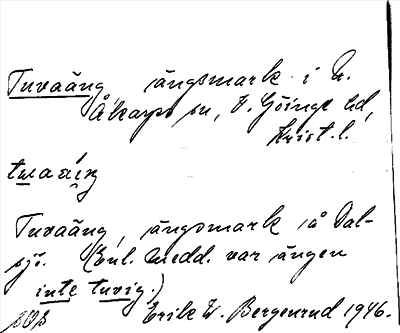 Tuvaäng, ängsmark i N.
Åkarps sn, V. Göinge hd,
Krist. l.
Tuvaäng, ängsmark å Dal-
sjö. (Enl. medd. var ängen
inte tuvig.)
Erik W. Bergenrud 1946.